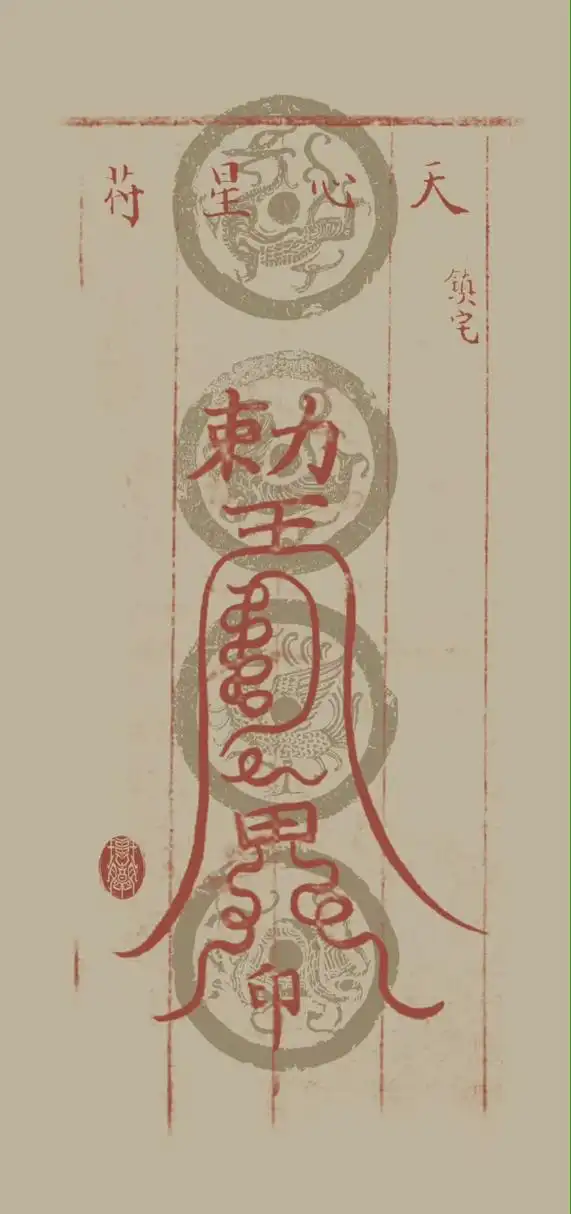 天心星符
鎮宅
勅
王
印